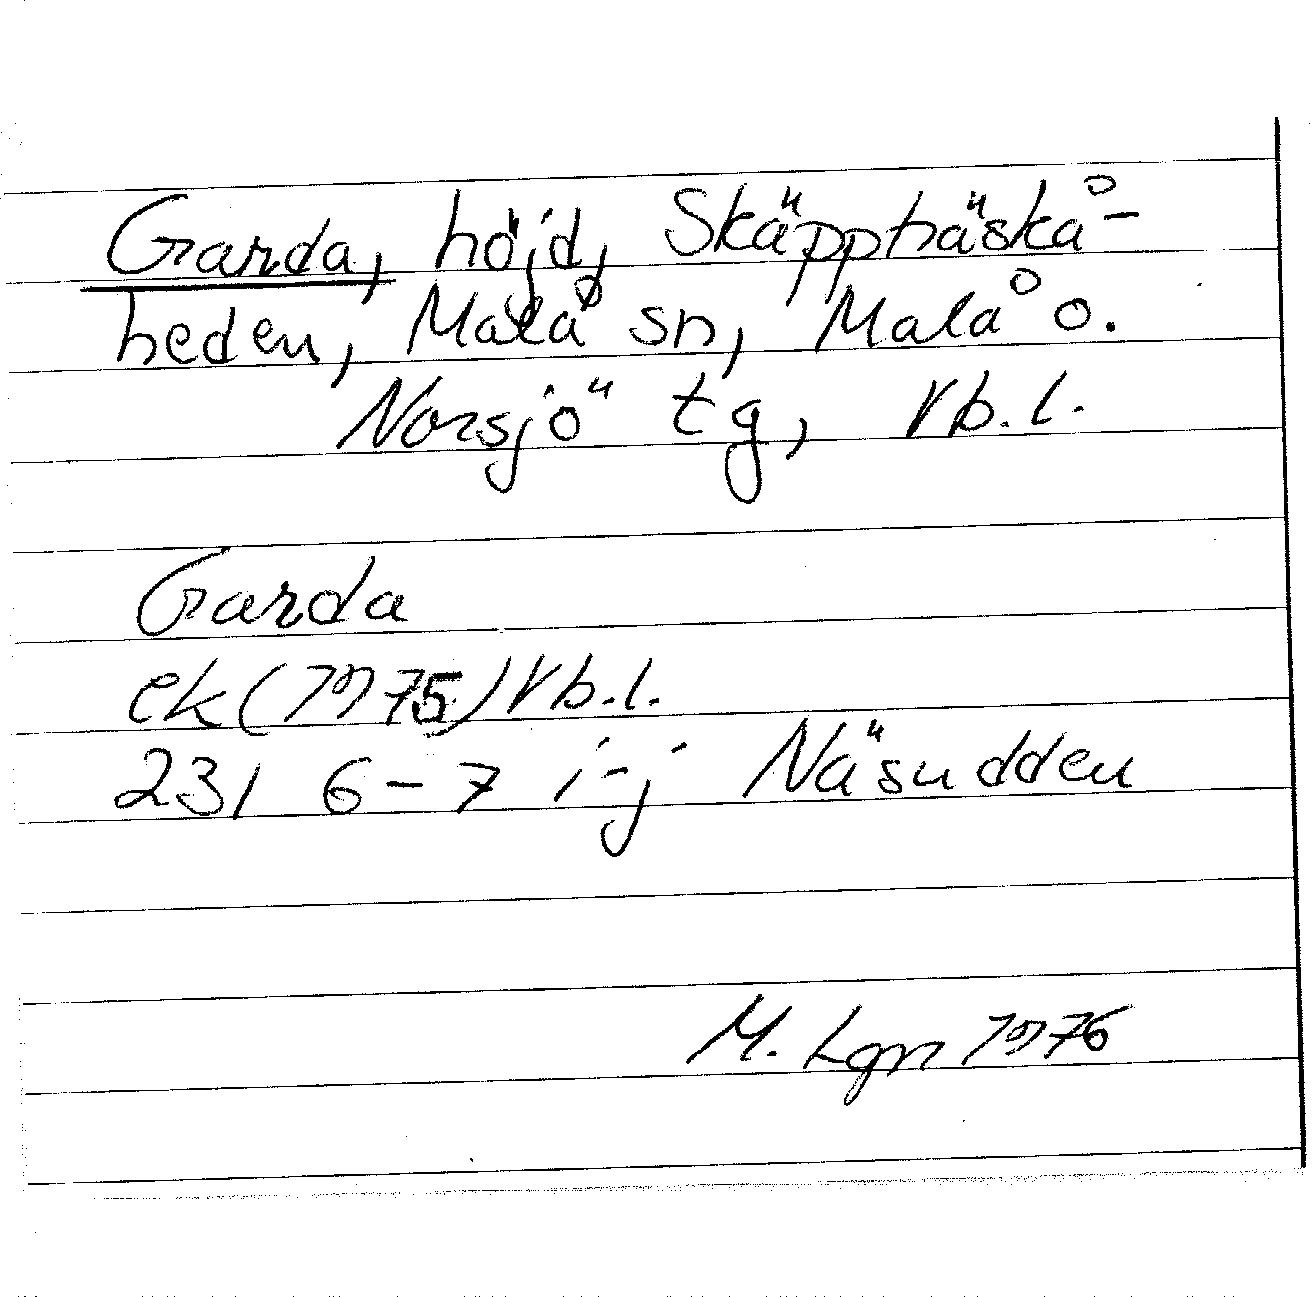 Garda, höjd, Skäppträskå-
heden, Malå sn, Malå o.
Norsjö tg, Vb.l.
Garda
ek (1975) Vb.l.
23I 6-7 i-j Näsudden
M. Lgn 1976